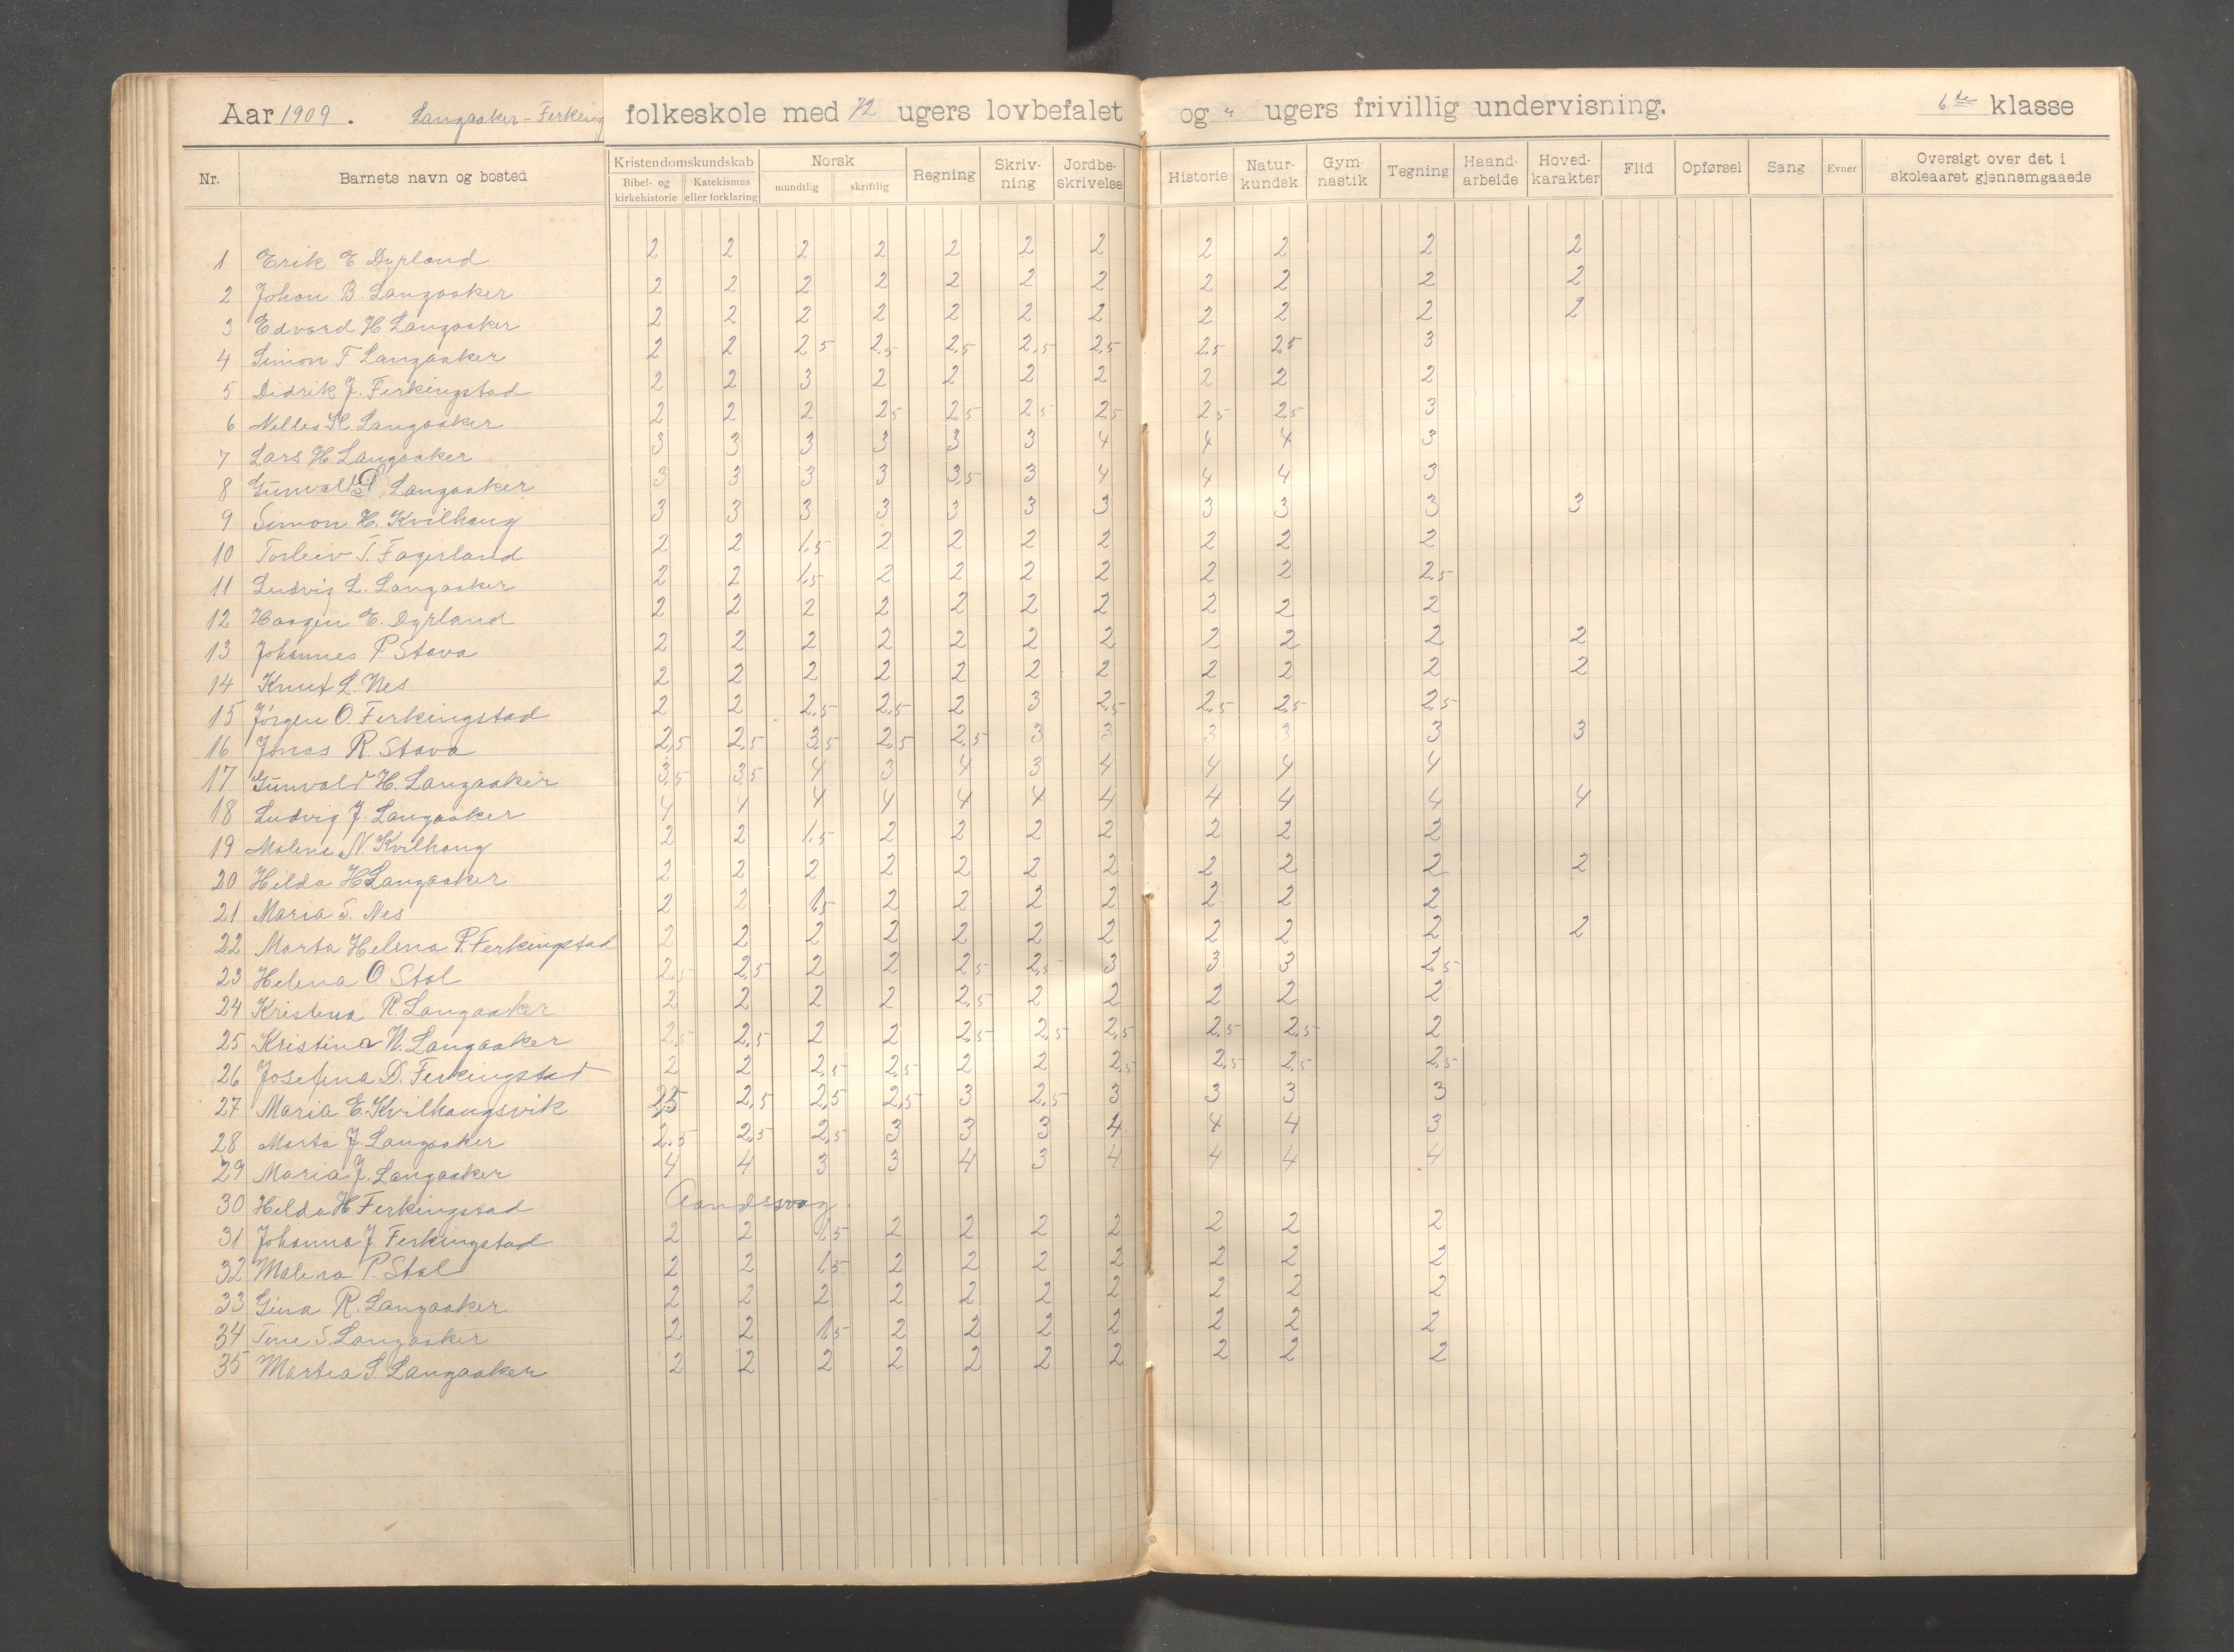 Aar 1909. Langaaker-Ferking folkeskole med 12 ugers lovbefalet og " ugers frivillig undervisning. 6te klasse
Nr. Barnets navn og bosted Kristendomskundskab Bibel- og kirkehistorie Katekismus eller forklaring Norsk mundtlig skriftlig Regning Skriv-ning Jordbe-skrivelse Historie Natur-kundsk. Gym-nastik Tegning Haand-arbeide Hoved-karakter Flid Opførsel Sang Evner Oversigt over det i skoleaaret gjennemgaaede
1 Erik E Dyrland 2 2 2 2 2 2 2 2 2 2 2
2 Johan B. Langaaker 2 2 2 2 2 2 2 2 2 2 2
3 Edvard H Langaaker 2 2 2 2 2 2 2 2 2 2 2
4 Simon F Langaaker 2 2 2,5 2,5 2,5 2,5 2,5 2,5 2,5 3
5 Didrik J. Ferkingstad 2 2 3 2 2 2 2 2 2 2
6 Nilles K. Langaaker 2 2 2 2,5 2,5 2,5 2,5 2,5 2,5 3
7 Lars H Langaaker 3 3 3 3 3 3 4 4 4 3
8 Gunvald Langaaker 3 3 3 3 3,5 3 4 4 4 3
9 Simon H. Kvilhaug 3 3 3 3 3 3 3 3 3 3 3
10 Torleiv T. Fagerland 2 2 1,5 2 2 2 2 2 2 2
11 Ludvig L. Langaaker 2 2 1,5 2 2 2 2 2 2 2,5
12 Haagen E. Dyrland 2 2 2 2 2 2 2 2 2 2
13 Johannes P. Stava 2 2 2 2 2 2 2 2 2 2 2
14 Knut L. Nes 2 2 2 2 2 2 2 2 2 2 2
15 Jørgen O. Ferkingstad 2 2 2,5 2,5 2 3 2,5 2,5 2,5 2,5
16 Jonas R. Stava 2,5 2,5 3,5 2,5 2,5 3 3 3 3 3 3
17 Gunvald H. Langaaker 3,5 3,5 4 3 4 3 4 4 4 4
18 Ludvig J. Langaaker 4 4 4 4 4 4 4 4 4 4 4
19 Malene N. Kvilhaug 2 2 1,5 2 2 2 2 2 2 2
20 Hilda H Langaaker 2 2 2 2 2 2 2 2 2 2 2
21 Maria S. Nes 2 2 1,5 2 2 2 2 2 2 2
22 Marta Helena P. Ferkingstad 2 2 2 2 2 2 2 2 2 2 2
23 Helena O Stol 2,5 2,5 2 2 2,5 2,5 3 3 3 2,5
24 Kristena R. Langaaker 2 2 2 2 2,5 2 2 2 2 2
25 Kristina N. Langaaker 2,5 2,5 2 2 2,5 2,5 2,5 2,5 2,5 2
26 Josefina D. Ferkingstad 2 2 2,5 2,5 2 2 2,5 2,5 2,5 2,5
27 Maria E. Kvilhaugsvik 2,5 2,5 2,5 2,5 3 2,5 3 3 3 3
28 Marta J. Langaaker 2,5 2,5 2,5 3 3 3 4 4 4 3
29 Maria J. Langaaker 4 4 3 3 4 3 4 4 4 4
30 Hilda H Ferkingstad Aandssvag.
31 Johanna J. Ferkingstad 2 2 1,5 2 2 2 2 2 2 2
32 Malena P. Stol 2 2 1,5 2 2 2 2 2 2 2
33 Gina R. Langaaker 2 2 2 2 2 2 2 2 2 2
34 Tine S. Langaaker 2 2 1,5 2 2 2 2 2 2 2
35 Martia S. Langaaker 2 2 2 2 2 2 2 2 2 2